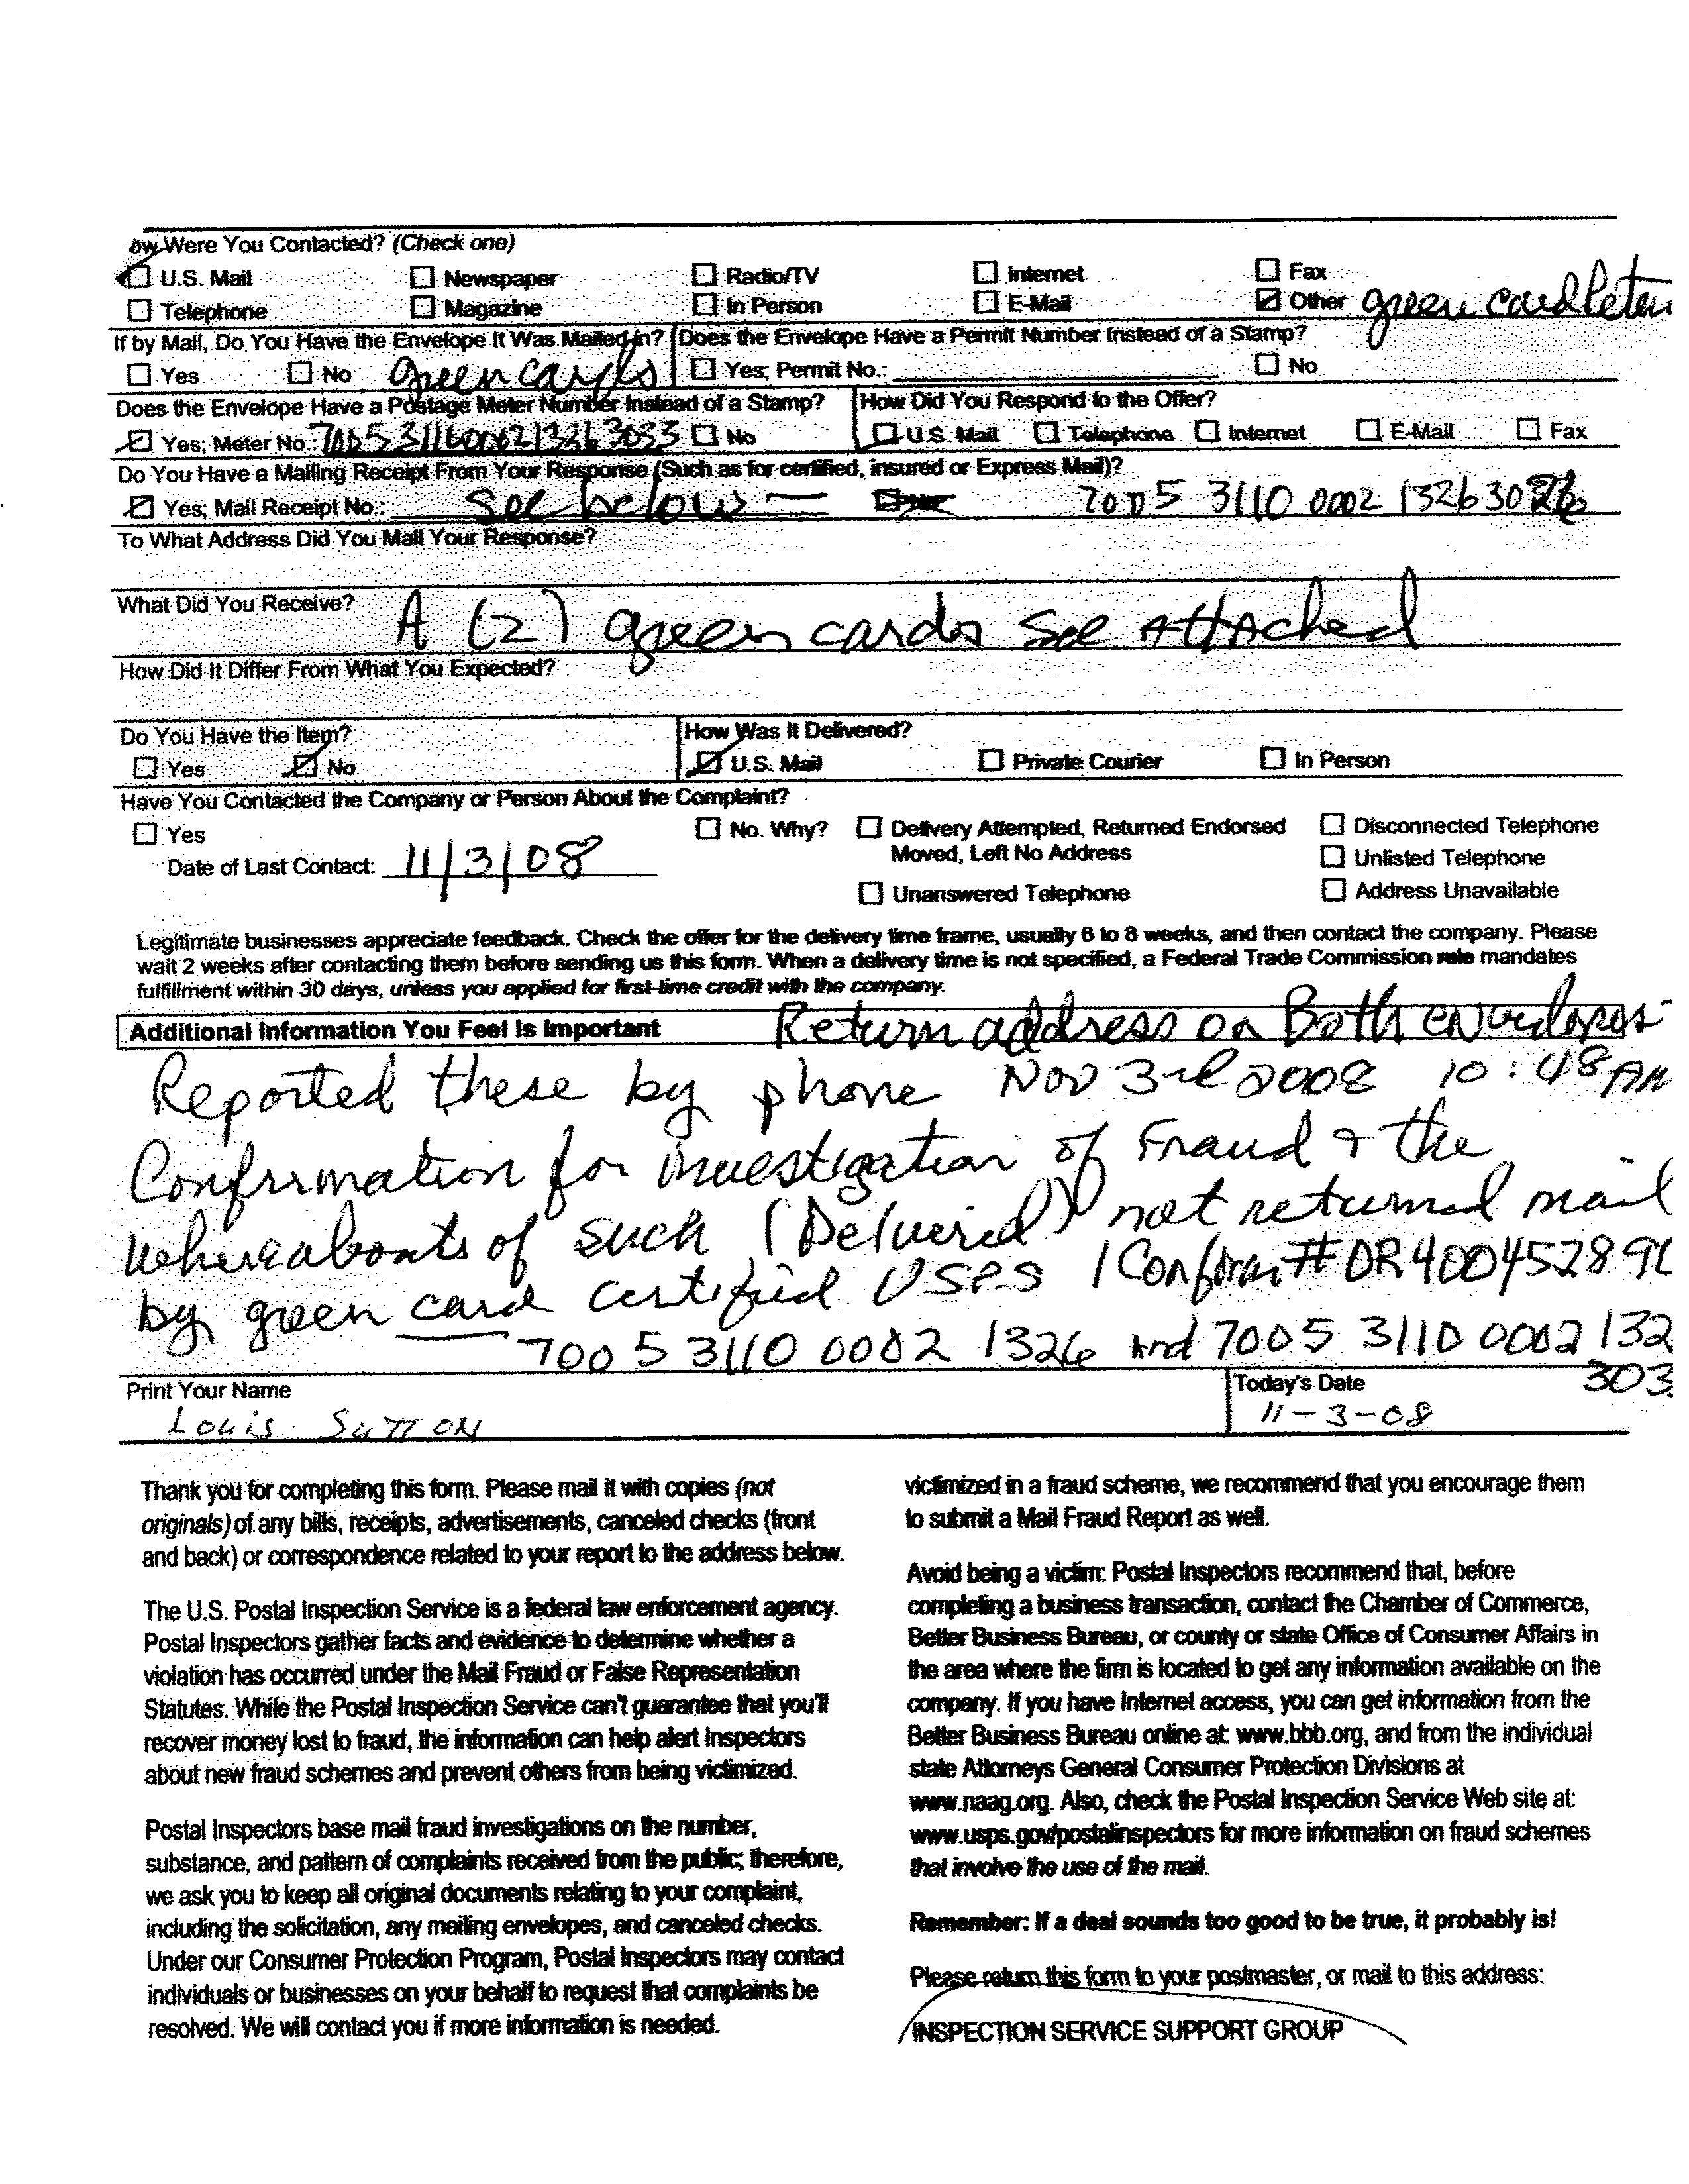 ow Were You Contacted? (Check one)
U.S. Mail Newspaper Radio/TV Internet Fax
Telephone Magazine In Person E-Mail Other green card
If by Mail, Do You Have the Envelope It Was Mailed in? Does the Envelope Have a Permit Number Instead of a Stamp?
Yes No green cards Yes; Permit No.: No
Does the Envelope Have a Postage Meter Number Instead of a Stamp? How Did You Respond to the Offer?
Yes; Meter No.: U.S. Mail Telephone Internet E-Mail Fax No
Do You Have a Mailing Receipt From Your Response (Such as for certified, insured or Express Mail)?
Yes; Mail Receipt No.: See below — 7005 3110 0002 1326
To What Address Did You Mail Your Response?
What Did You Receive? A (2) green cards See Attached
How Did It Differ From What You Expected?
Do You Have the Item? How Was It Delivered?
Yes No U.S. Mail Private Courier In Person
Have You Contacted the Company or Person About the Complaint?
Yes No. Why? Delivery Attempted, Returned Endorsed Disconnected Telephone
Date of Last Contact: 11/3/08 Moved, Left No Address Unlisted Telephone
Unanswered Telephone Address Unavailable
Legitimate businesses appreciate feedback. Check the offer for the delivery time frame, usually 6 to 8 weeks, and then contact the company. Please
wait 2 weeks after contacting them before sending us this form. When a delivery time is not specified, a Federal Trade Commission rule mandates
fulfillment within 30 days, unless you applied for first-time credit with the company.
Additional Information You Feel Is Important Return address on Both envelopes-
Reported these by phone Nov 3rd 2008 10:48 AM
Confirmation for investigation of Fraud & the
whereabouts of such (Delivered) not returned mail
by green card certified USPS / Confirm # DR40045289
7005 3110 0002 1326 And 7005 3110 0002 132
303
Print Your Name Today's Date
LOUIS SUTTON 11-3-08
Thank you for completing this form. Please mail it with copies (not
originals) of any bills, receipts, advertisements, canceled checks (front
and back) or correspondence related to your report to the address below.
The U.S. Postal Inspection Service is a federal law enforcement agency.
Postal Inspectors gather facts and evidence to determine whether a
violation has occurred under the Mail Fraud or False Representation
Statutes. While the Postal Inspection Service can't guarantee that you'll
recover money lost to fraud, the information can help alert Inspectors
about new fraud schemes and prevent others from being victimized.
Postal Inspectors base mail fraud investigations on the number,
substance, and pattern of complaints received from the public; therefore,
we ask you to keep all original documents relating to your complaint,
including the solicitation, any mailing envelopes, and canceled checks.
Under our Consumer Protection Program, Postal Inspectors may contact
individuals or businesses on your behalf to request that complaints be
resolved. We will contact you if more information is needed.
victimized in a fraud scheme, we recommend that you encourage them
to submit a Mail Fraud Report as well.
Avoid being a victim: Postal Inspectors recommend that, before
completing a business transaction, contact the Chamber of Commerce,
Better Business Bureau, or county or state Office of Consumer Affairs in
the area where the firm is located to get any information available on the
company. If you have Internet access, you can get information from the
Better Business Bureau online at: www.bbb.org, and from the individual
state Attorneys General Consumer Protection Divisions at
www.naag.org. Also, check the Postal Inspection Service Web site at:
www.usps.gov/postalinspectors for more information on fraud schemes
that involve the use of the mail.
Remember: If a deal sounds too good to be true, it probably is!
Please return this form to your postmaster, or mail to this address:
INSPECTION SERVICE SUPPORT GROUP